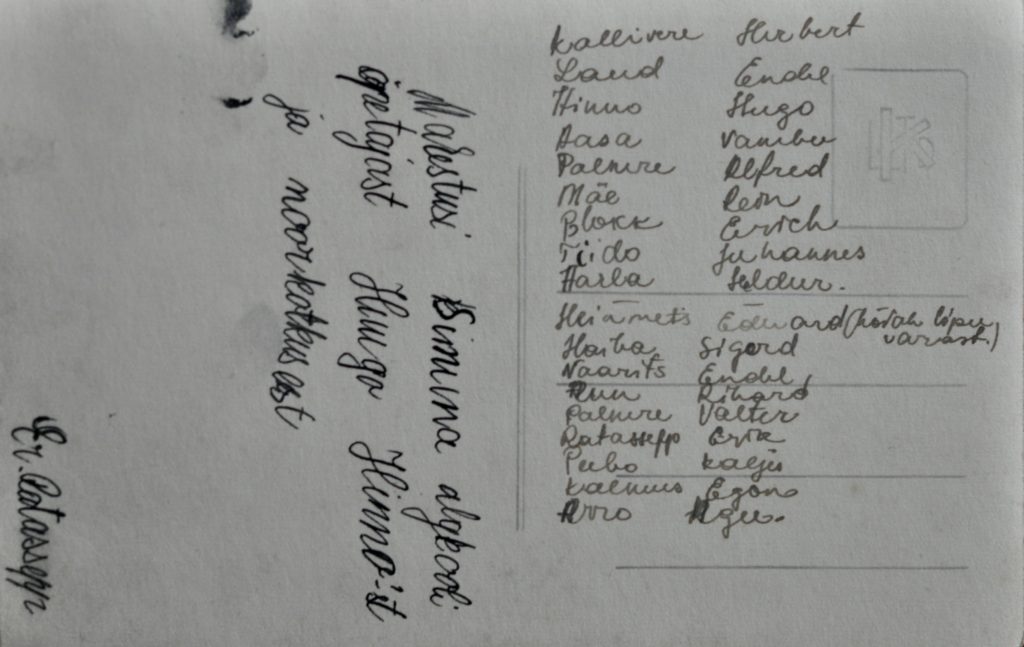 Mälestusi Simuna algkooli
õpetajast Huugo Hinno'st
ja noorkotkusest
Er. Ratassepp
Kallivere Herbert
Laud Endel
Hinno Hugo
Aasa Vambu
Palmre Alfred
Mäe Rein
Blokk Erich
Tiido Juhannes
Harba Heldur.
Heinmets Eduard (
Haiba Sigord
Naarits Endel
Rihard
Palmre Valter
Ratassepp Erik
Peebo Kalju
Kalmus Egon
Arro Agu.